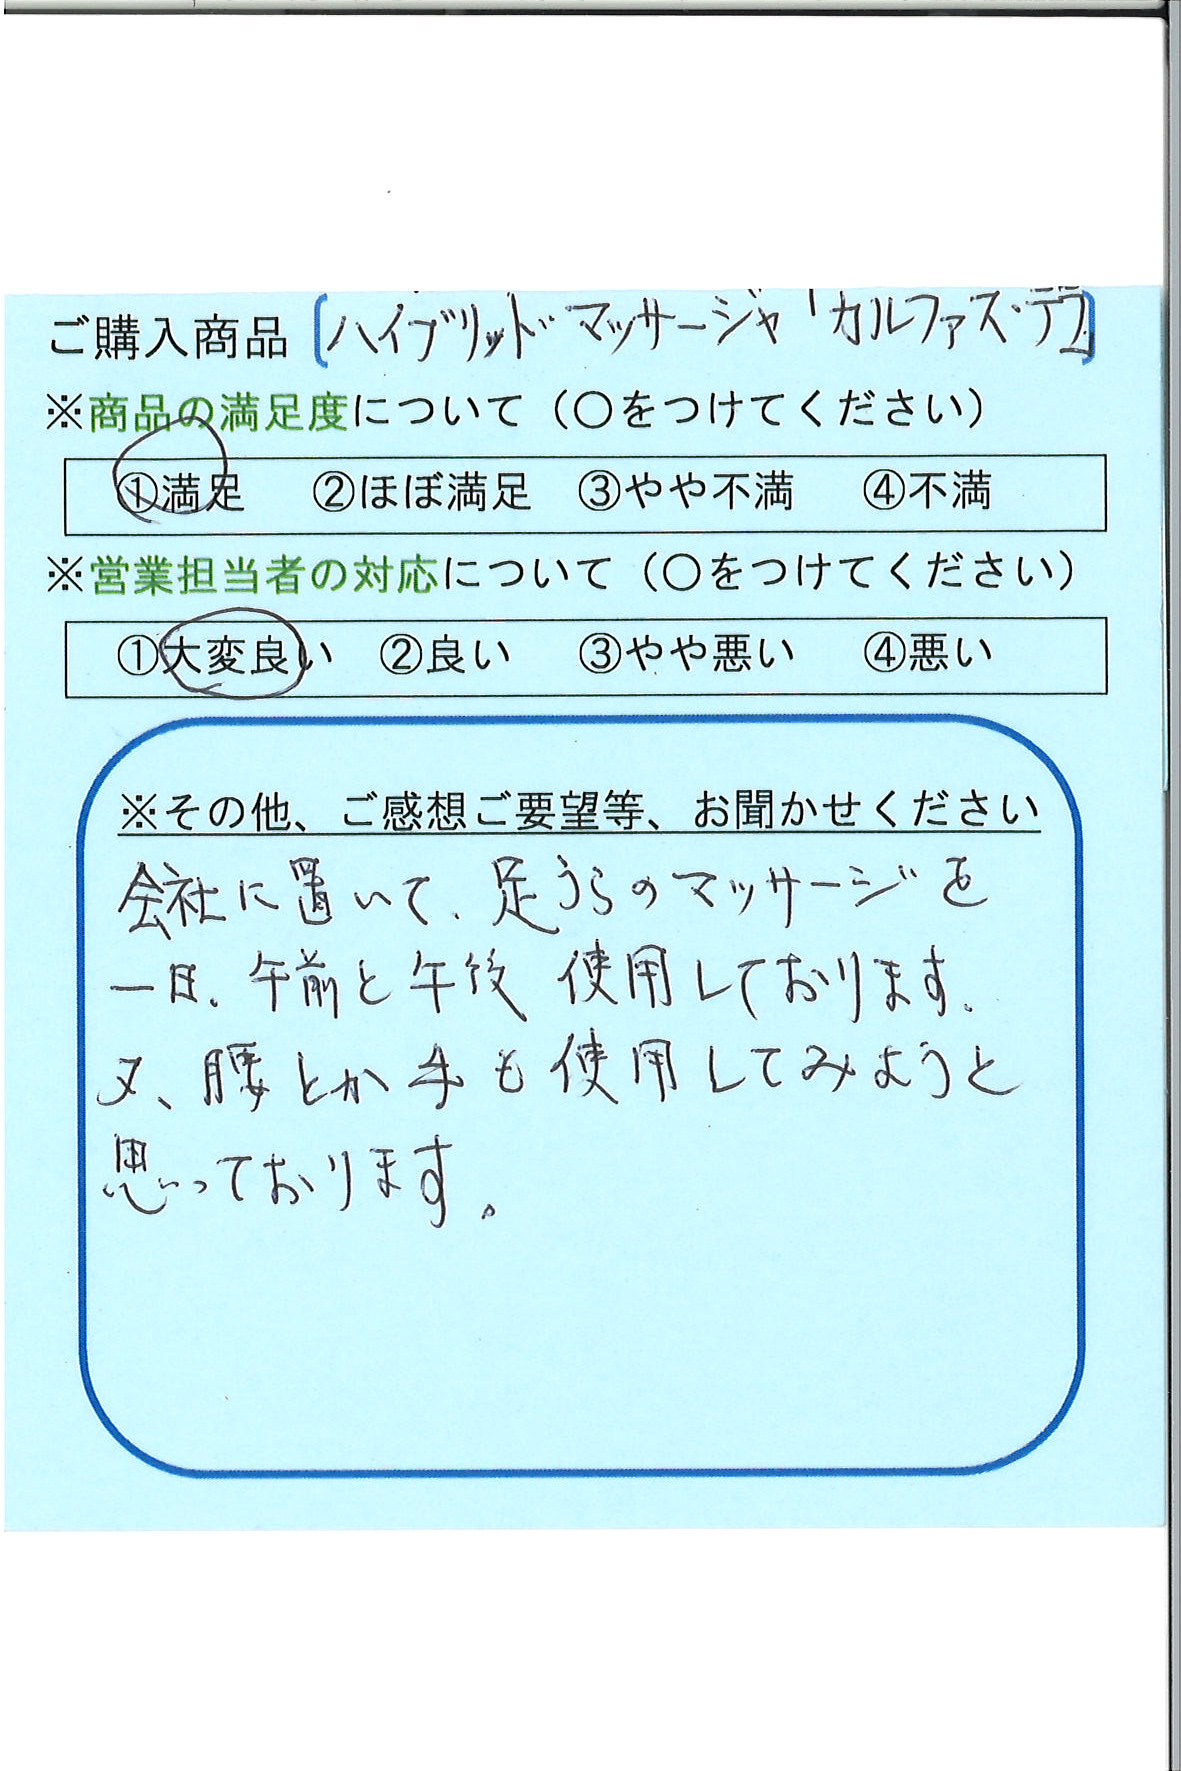 ご購入商品 [ハイブリッド・マッサージャ「カルファス・デュ」]
※商品の満足度について（○をつけてください）
①満足 ②ほぼ満足 ③やや不満 ④不満
※営業担当者の対応について（○をつけてください）
①大変良い ②良い ③やや悪い ④悪い
※その他、ご感想ご要望等、お聞かせください
会社に置いて、足うらのマッサージを
一日、午前と午後 使用しております。
又、腰とか手も使用してみようと
思っております。